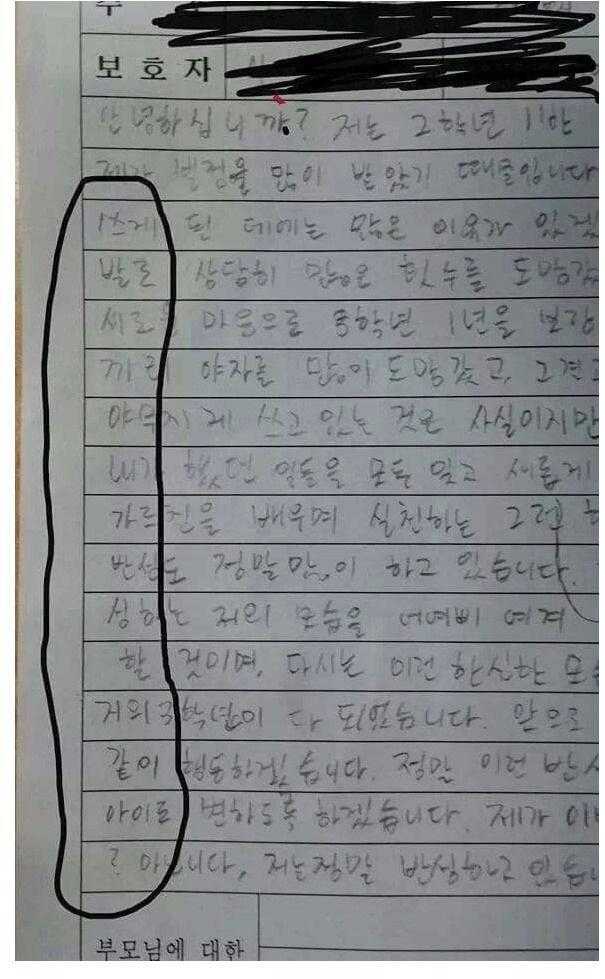 보호자
안녕하십니까? 저는 2학년 11반
제가 벌점을 많이 받았기 때문입니다
쓰게 된 데에는 많은 이유가 있겠
발로 상당히 많은 횟수를 도망갔
새로운 마음으로 3학년 1년을 보장
까진 야자를 많이 도망갔고, 그
야무지게 쓰고 있는 것은 사실이지만
내가 했던 일들을 모두 잊고 새롭게
가르침을 배우며 실천하는 그런
반성도 정말 많이 하고 있습니다.
성하는 저의 모습을 어여삐 여겨
할 것이며, 다시는 이런 한심한 모습
거의 3학년이 다 되었습니다. 앞으로
같이 행동하겠습니다. 정말 이런 반성
아이로 변하도록 하겠습니다. 제가 이
? 아닙니다, 저는 정말 반성하고 있습니
부모님에 대한